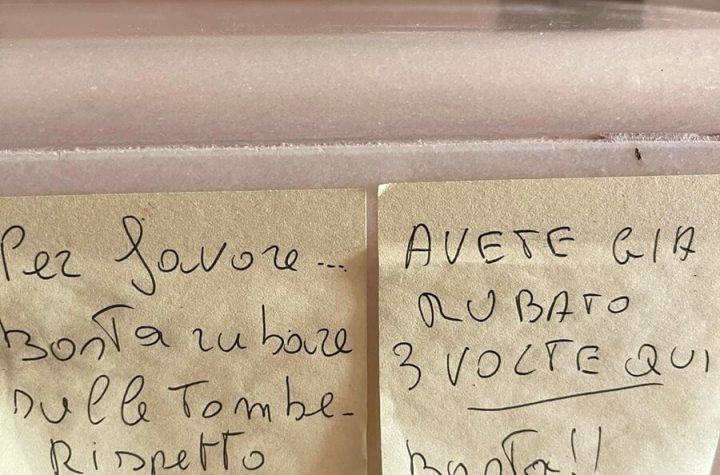 Per favore...
Basta rubare
sulle tombe.
Rispetto
AVETE GIA
RUBATO
3 VOLTE QUI
Basta!!